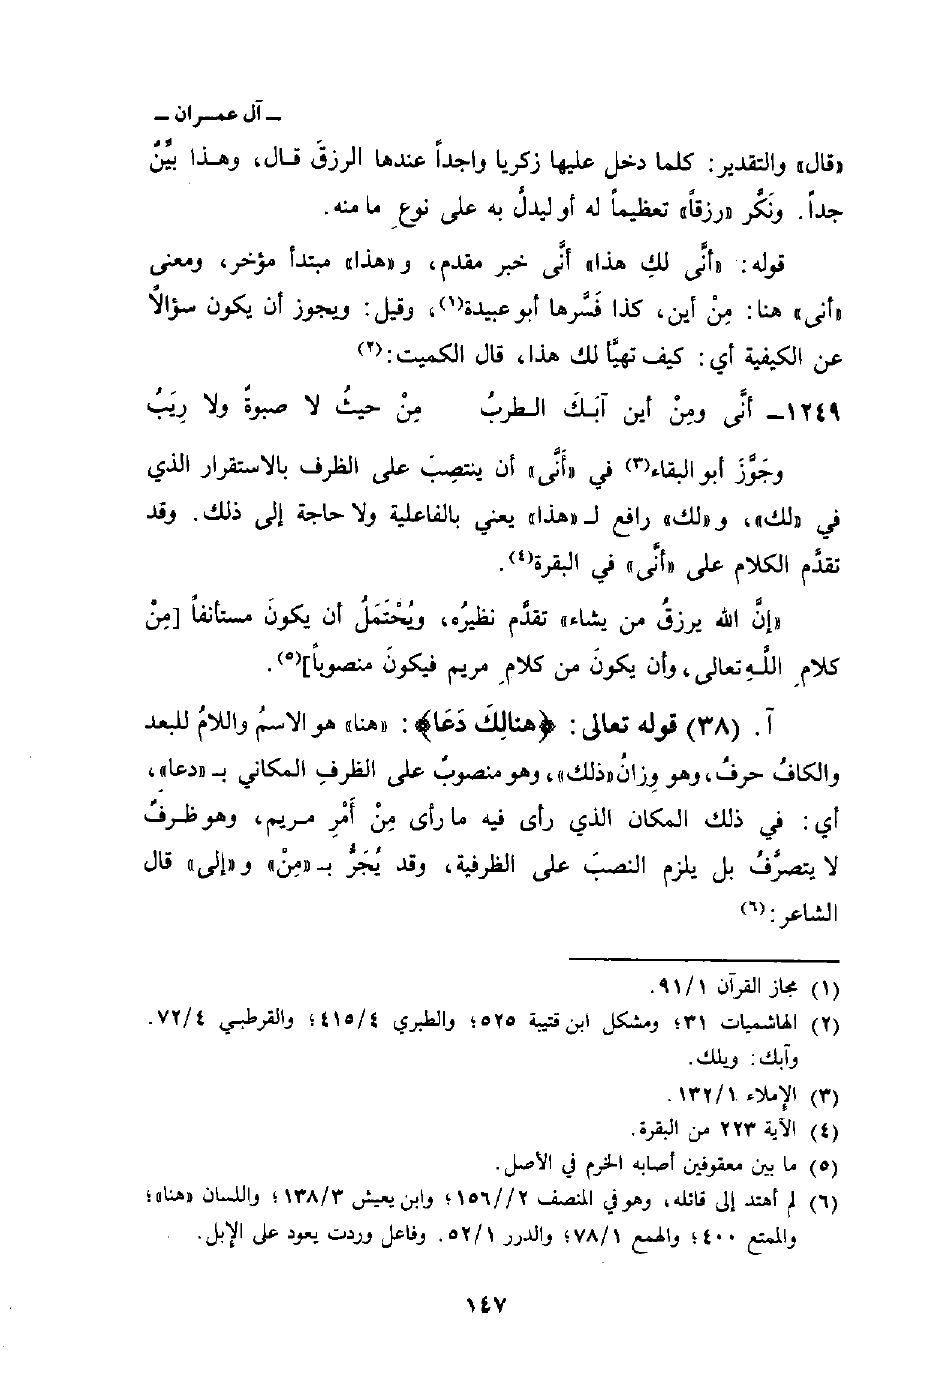 ـ آل عمـران ـ
«قال» والتقدير: كلما دخل عليها زكريا واجداً عندها الرزقَ قال، وهـذا بيِّنٌ
جداً. ونَكَّر «رزقاً» تعظيماً له أو ليدلَّ به على نوعٍ ما منه.
قوله: «أنَّى لكِ هذا» أنَّى خبر مقدم، و«هذا» مبتدأ مؤخر، ومعنى
«أنى» هنا: مِنْ أين، كذا فَسَّرها أبو عبيدة(١)، وقيل: ويجوز أن يكون سؤالاً
عن الكيفية أي: كيف تهيَّأ لك هذا، قال الكميت:(٢)
١٢٤٩ـ أنَّى ومِنْ أين آبَـكَ الـطربُ مِنْ حيثُ لا صبوةٌ ولا رِيَبُ
وجَوَّزَ أبو البقاء(٣) في «أَنَّى» أن ينتصِبَ على الظرف بالاستقرار الذي
في «لك»، و«لك» رافع لـ«هذا» يعني بالفاعلية ولا حاجة إلى ذلك. وقد
تقدَّم الكلام على «أنَّى» في البقرة(٤).
«إنَّ الله يرزقُ من يشاء» تقدَّم نظيرُه، ويُحْتَمَلُ أن يكونَ مستأنفاً [مِنْ
كلامِ اللَّهِ تعالى، وأن يكونَ من كلامِ مريم فيكونَ منصوباً](٥).
آ. (٣٨) قوله تعالى: ﴿هنالِكَ دَعَا﴾: «هنا» هو الاسمُ واللامُ للبعد
والكافُ حرفُ، وهو وِزانُ «ذلك»، وهو منصوبٌ على الظرفِ المكاني بـ«دعا»،
أي: في ذلك المكان الذي رأى فيه ما رأى مِنْ أَمْرِ مـريم، وهو ظـرفٌ
لا يتصرَّفُ بل يلزم النصبَ على الظرفية، وقد يُجَرُّ بـ«مِنْ» و«إلى» قال
الشاعر:(٦)
(١) مجاز القرآن ٩١/١.
(٢) الهاشميات ٣١؛ ومشكل ابن قتيبة ٥٢٥؛ والطبري ٤١٥/٤؛ والقرطبي ٧٢/٤.
وآبك: ويلك.
(٣) الإملاء ١٣٢/١.
(٤) الآية ٢٢٣ من البقرة.
(٥) ما بين معقوفين أصابه الخرم في الأصل.
(٦) لم أهتد إلى قائله، وهو في المنصف ٢//١٥٦؛ وابن يعيش ١٣٨/٣؛ واللسان «هنا»؛
والممتع ٤٠٠؛ والهمع ٧٨/١؛ والدرر ٥٢/١. وفاعل وردت يعود على الإبل.
١٤٧